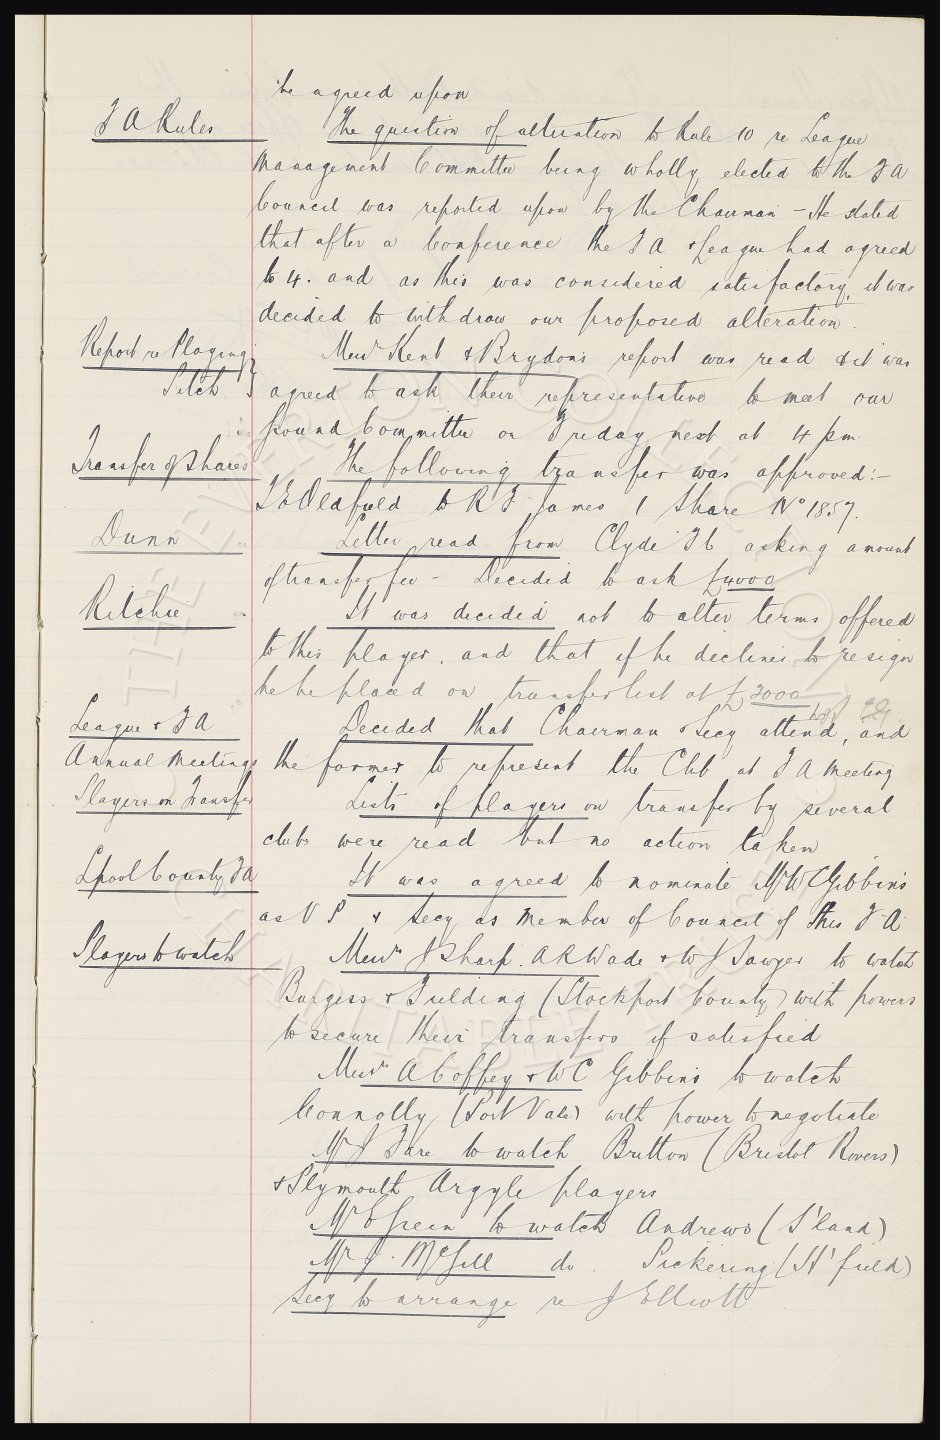 be agreed upon
F A Rules The question of alteration to Rule 10 re League
Management Committee being wholly elected to the F A
Council was reported upon by the Chairman – He stated
that after a Conference the F A & League had agreed
to 4. and as this was considered satisfactory, it was
decided to withdraw our proposed alteration.
Report re Playing Messrs Kent & Brydon's report was read & it was
Pitch } agreed to ask their representative to meet our
Ground Committee on Friday next at 4 pm.
Transfer of Shares The following transfer was approved:–
T E Oldfield to R F James 1 Share No 1857.
Dunn Letter read from Clyde F C asking amount
of transfer fee – Decided to ask £4000
Ritchie It was decided not to alter terms offered
to this player, and that if he declines to resign
he be placed on transfer list at £2000
League & F A Decided that Chairman & Secy attend, and
Annual Meetings the former to represent the Club at F A Meeting
Players on Transfer Lists of players on transfer by several
clubs were read but no action taken
Lpool County FA It was agreed to nominate Mr W C Gibbins
as V P & Secy as Member of Council of this F A
Players to watch Messrs J Sharp. A R Wade & W J Sawyer to watch
Burgess & Fielding (Stockport County) with powers
to secure their transfers if satisfied
Messrs A Coffey & W C Gibbins to watch
Connolly (Port Vale) with power to negotiate
Mr J Fare to watch Britton (Bristol Rovers)
& Plymouth Argyle players
Mr E Green to watch Andrews (S'land)
Mr J. McGill do. Pickering (H'field)
Secy to arrange re J Elliott
THE EVERTON COLLECTION
CHARITABLE TRUST